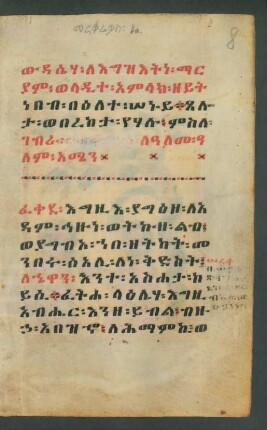 ውዳሴሃ፡ለእግዝእትነ፡ማር
ያም፡ወላዲተ፡አምላክ፡ዘይት
ነበብ፡በዕለተ፡ሠኑይ፡ጸሎ
ታ፡ወበረከታ፡የሃሉ፡ምስለ፡
ገብራ፡ ለዓለመ፡ዓ
ለም፡አሜን
ፈቀደ፡እግዚእ፡ያግዕዘ፡ለአ
ዳም፡ኅዙነ፡ወትኩዘ፡ልብ፡
ወያግብኦ፡ኀበ፡ዘትካት፡መ
ንበሩ፡ሰአሊ፡ለነ፡ቅድስት፡
ለሔዋን፡እንተ፡አስሐታ፡ከ
ይሲ፡ፈትሐ፡ላዕሌሃ፡እግዚ
አብሔር፡እንዘ፡ይብል፡ብዙ
ኃ፡አበዝኖ፡ለሕማምኪ፡ወ